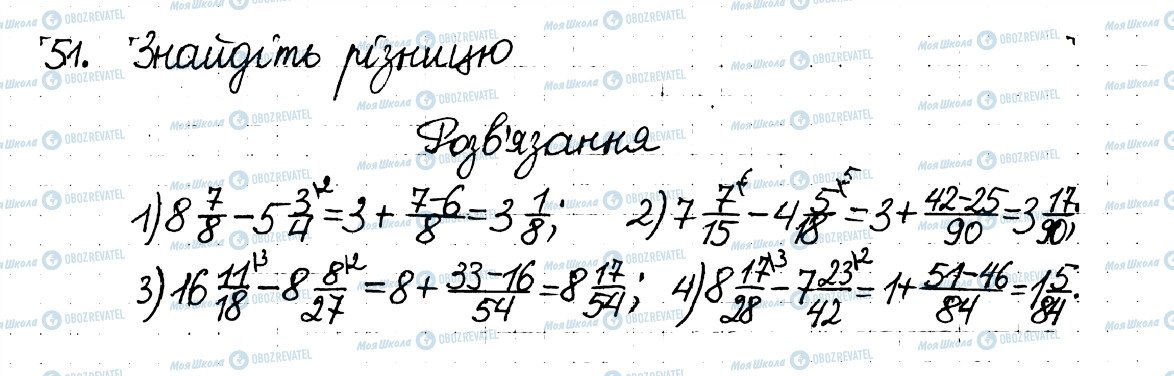 51. Знайдіть різницю
Розв'язання
1) 8 7/8 - 5 3/4 |2 = 3 + (7-6)/8 = 3 1/8; 2) 7 7/15 |6 - 4 5/18 |5 = 3 + (42-25)/90 = 3 17/90;
3) 16 11/18 |3 - 8 8/27 |2 = 8 + (33-16)/54 = 8 17/54; 4) 8 17/28 |3 - 7 23/42 |2 = 1 + (51-46)/84 = 1 5/84.
Моя Школа OBOZREVATEL